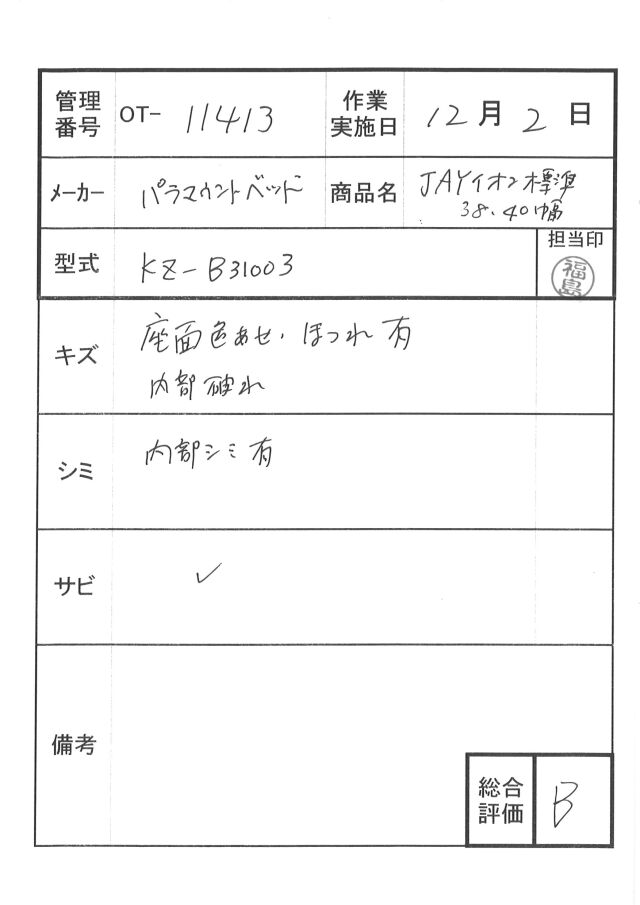 管理番号 OT- 11413 作業実施日 12月2日
メーカー パラマウントベッド 商品名 JAYイオン標準
38.40幅
型式 KZ-B31003 担当印
福島
キズ 座面色あせ、ほつれ有
内部破れ
シミ 内部シミ有
サビ ✓
備考
総合評価 B